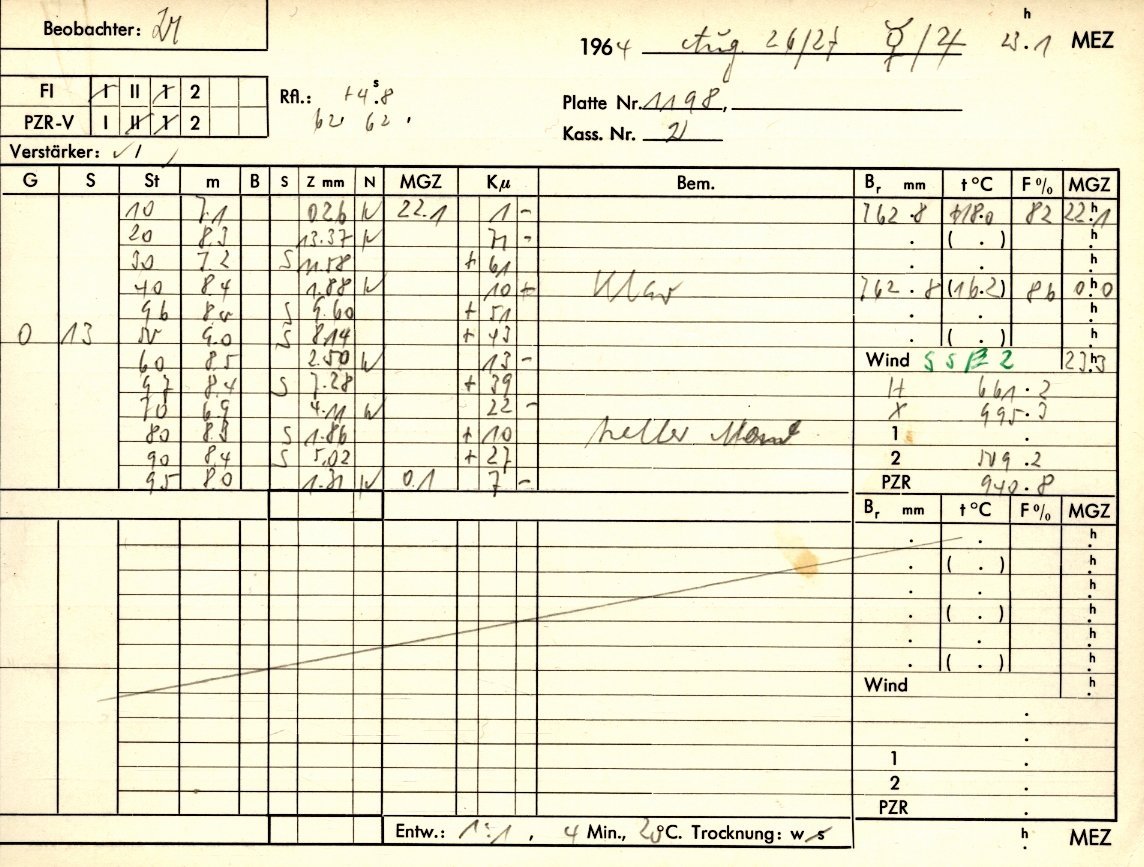 Beobachter:
1964 Aug. 26/27 ☿/♃ 23.1 h MEZ
FI I II 1 2
PZR-V I II 1 2
Rfl.: +4.8 s
62. 62.
Platte Nr. 1198,
Kass. Nr. 2
Verstärker: √1
G S St m B S Z mm N MGZ Kμ Bem. Br mm t °C F % MGZ
10 7.1 026 N 22.1 1 - 762.8 +18.0 82 22.1 h
20 8.3 13.37 N 71 - . ( . ) h
30 7.2 S 11.58 + 61 . . h
40 8.4 1.88 N 10 + Klar 762.8 (16.2) 86 0.0 h
96 S 9.60 + 51 . . h
0 13 50 9.0 S 8.14 + 43 . ( . ) h
60 8.5 2.50 N 13 - Wind SSE 2 23.3 h
97 8.4 S 7.28 + 39 H 661.2
70 6.9 4.11 N 22 - X 995.3
80 8.3 S 1.86 + 10 heller Mond 1 .
90 8.4 S 5.02 + 27 2 509.2
95 8.0 1.31 N 0.1 7 - PZR 940.8
Br mm t °C F % MGZ
. . h
. ( . ) h
. . h
. ( . ) h
. . h
. ( . ) h
Wind . h
.
.
1 .
2 .
PZR .
Entw.: 1:1, 4 Min., 20°C. Trocknung: w/s h . MEZ